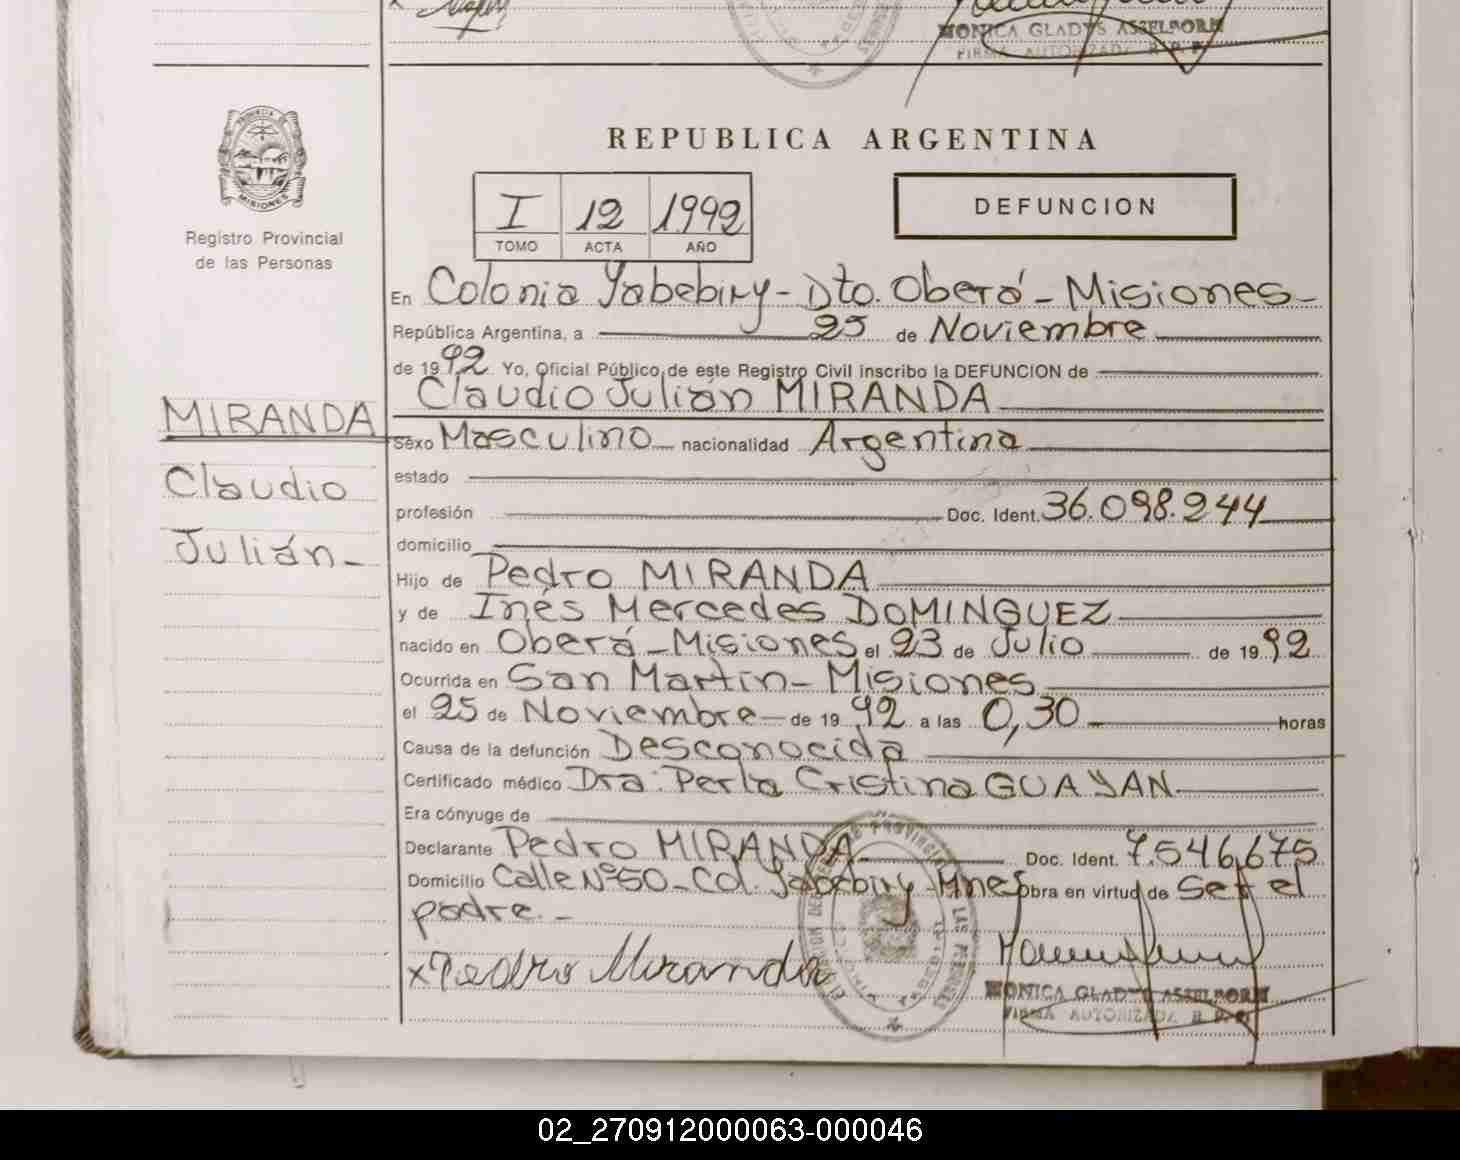 MONICA GLADYS ASSELBORN
FIRMA AUTORIZADA R. P. P.
PROVINCIA DE
MISIONES
Registro Provincial
de las Personas
REPUBLICA ARGENTINA
I 12 1992
TOMO ACTA AÑO
DEFUNCION
En Colonia Yabebiry - Dto. Oberá - Misiones -
República Argentina, a 25 de Noviembre
de 1992 Yo, Oficial Público de este Registro Civil inscribo la DEFUNCION de
Claudio Julián MIRANDA
MIRANDA
Claudio
Julián -
Sexo Masculino nacionalidad Argentina
estado
profesión Doc. Ident. 36.098.244
domicilio
Hijo de Pedro MIRANDA
y de Inés Mercedes DOMINGUEZ
nacido en Oberá - Misiones el 23 de Julio de 1992
Ocurrida en San Martín - Misiones
el 25 de Noviembre de 1992 a las 0,30 horas
Causa de la defunción Desconocida
Certificado médico Dra: Perla Cristina GUAYAN
Era cónyuge de
Declarante Pedro MIRANDA Doc. Ident. 7.546.675
Domicilio Calle Nº50 - Col. Yabebiry - Mnes Obra en virtud de Ser el
padre. -
x Pedro Miranda
MONICA GLADYS ASSELBORN
FIRMA AUTORIZADA R. P. P.
02_270912000063-000046